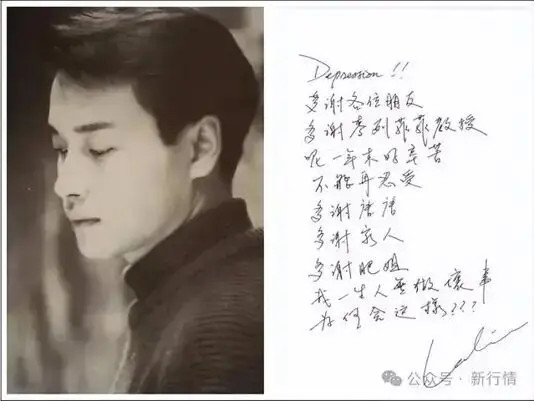 Depression !!
多謝各位朋友
多謝麥列菲菲教授
呢一年来好辛苦
不能再忍受
多謝唐唐
多謝家人
多謝肥姐
我一生人無做壞事
为何会這樣???
公众号 · 新行情